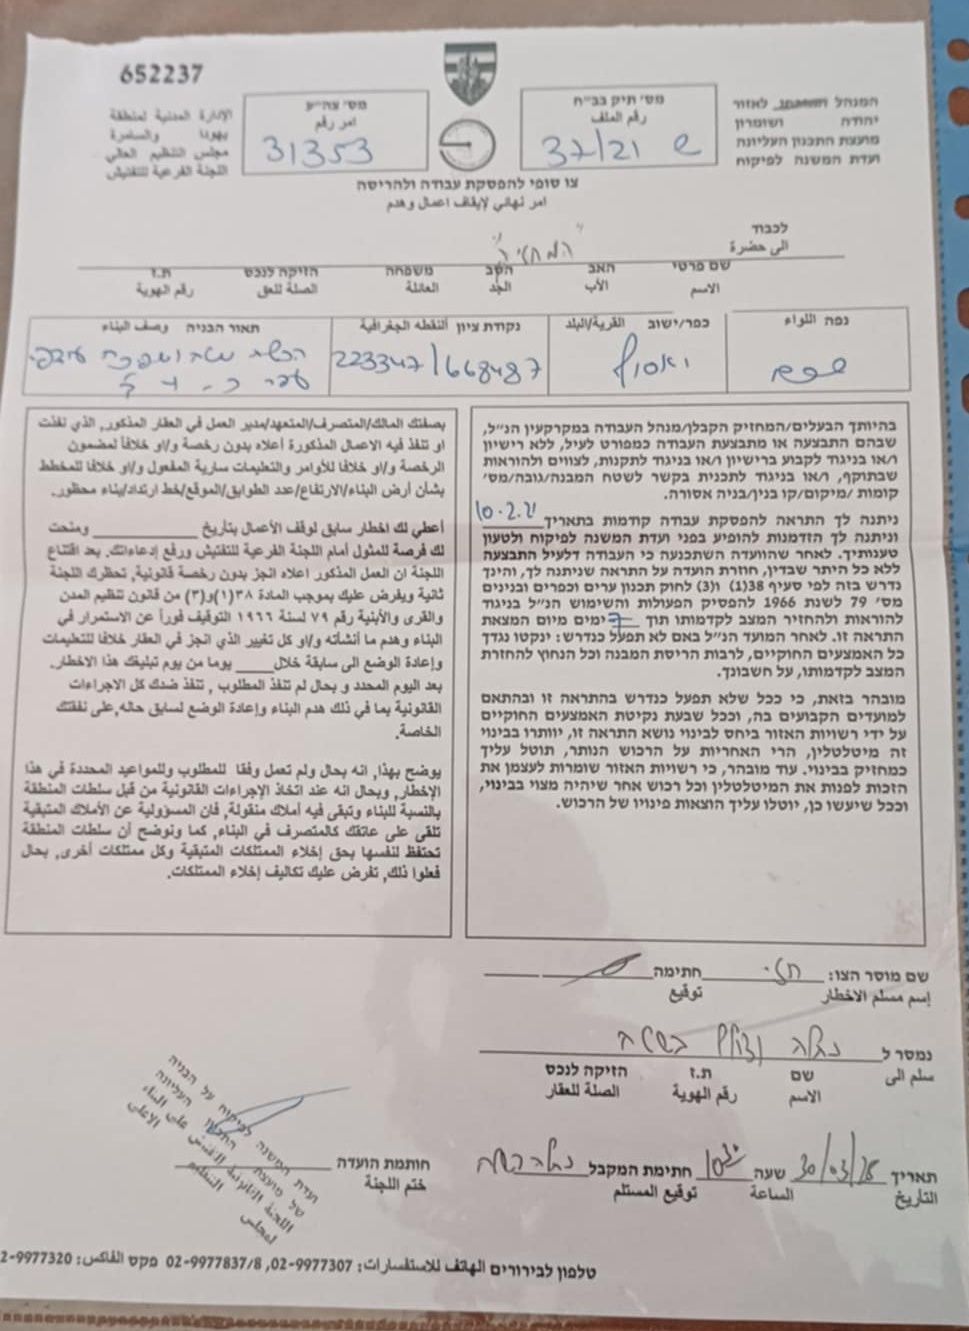 652237
המנהל האזרחי לאזור
יהודה ושומרון
מועצת התכנון העליונה
ועדת המשנה לפיקוח
מס' תיק בב"ח
رقم الملف
ש 37/21
מס' צה"ע
امر رقم
31353
الإدارة المدنية لمنطقة
يهودا والسامرة
مجلس التنظيم العالي
اللجنة الفرعية للتفتيش
צו סופי להפסקת עבודה ולהריסה
امر نهائي لإيقاف اعمال وهدم
לכבוד
الى حضرة
"המחזיק"
שם פרטי האב הסב משפחה הזיקה לנכס ת.ז
الاسم الأب الجد العائلة الصلة للحق رقم الهوية
נפה اللواء
שכם
כפר/ישוב القرية/البلد
נקודת ציון النقطه الجغرافية
223347/668487
תאור הבניה وصف البناء
בהיותך הבעלים/המחזיק הקבלן/מנהל העבודה במקרקעין הנ"ל,
שבהם התבצעה או מתבצעת העבודה כמפורט לעיל, ללא רישיון
ו/או בניגוד לקבוע ברישיון ו/או בניגוד לתקנות, לצווים ולהוראות
שבתוקף, ו/או בניגוד לתכנית בקשר לשטח המבנה/גובה/מס'
קומות /מיקום/קו בנין/בניה אסורה.
ניתנה לך התראה להפסקת עבודה קודמות בתאריך 10.2.21
וניתנה לך הזדמנות להופיע בפני ועדת המשנה לפיקוח ולטעון
טענותיך. לאחר שהוועדה השתכנעה כי העבודה דלעיל התבצעה
ללא כל היתר שבדין, חוזרת הועדה על התראה שניתנה לך, והינך
נדרש בזה לפי סעיף 38(1) ו(3) לחוק תכנון ערים וכפרים ובנינים
מס' 79 לשנת 1966 להפסיק הפעולות והשימוש הנ"ל בניגוד
להוראות ולהחזיר המצב לקדמותו תוך 7 ימים מיום המצאת
התראה זו. לאחר המועד הנ"ל באם לא תפעל כנדרש: ינקטו נגדך
כל האמצעים החוקיים, לרבות הריסת המבנה וכל הנחוץ להחזרת
המצב לקדמותו, על חשבונך.
מובהר בזאת, כי ככל שלא תפעל כנדרש בהתראה זו ובהתאם
למועדים הקבועים בה, וככל שבעת נקיטת האמצעים החוקיים
על ידי רשויות האזור ביחס לבינוי נושא התראה זו, יוותרו בבינוי
זה מיטלטלין, הרי האחריות על הרכוש הנותר, תוטל עליך
כמחזיק בבינוי. עוד מובהר, כי רשויות האזור שומרות לעצמן את
הזכות לפנות את המיטלטלין וכל רכוש אחר שיהיה מצוי בבינוי,
וככל שיעשו כן, יוטלו עליך הוצאות פינויו של הרכוש.
بصفتك المالك/المتصرف/المتعهد/مدير العمل في العقار المذكور, الذي نفذت
او تنفذ فيه الاعمال المذكورة أعلاه بدون رخصة و/او خلافاً لمضمون
الرخصة و/او خلافا للأوامر والتعليمات سارية المفعول و/او خلافا للمخطط
بشأن أرض البناء/الارتفاع/عدد الطوابق/الموقع/خط ارتداد/بناء محظور.
أعطي لك اخطار سابق لوقف الأعمال بتأريخ ومنحت
لك فرصة للمثول أمام اللجنة الفرعية للتفتيش ورفع إدعاءاتك. بعد اقتناع
اللجنة ان العمل المذكور اعلاه انجز بدون رخصة قانونية, تحظرك اللجنة
ثانية ويفرض عليك بموجب المادة ٣٨(١)و(٣) من قانون تنظيم المدن
والقرى والأبنية رقم ٧٩ لسنة ١٩٦٦ التوقيف فوراً عن الاستمرار في
البناء وهدم ما أنشأته و/او كل تغيير الذي انجز في العقار خلافا للتعليمات
وإعادة الوضع الى سابقة خلال يوما من يوم تبليغك هذا الاخطار.
بعد اليوم المحدد و بحال لم تنفذ المطلوب , تنفذ ضدك كل الاجراءات
القانونية بما في ذلك هدم البناء وإعادة الوضع لسابق حاله,على نفقتك
الخاصة.
يوضح بهذا, انه بحال ولم تعمل وفقا للمطلوب وللمواعيد المحددة في هذا
الإخطار, وبحال انه عند اتخاذ الإجراءات القانونية من قبل سلطات المنطقة
بالنسبة للبناء وتبقى فيه أملاك منقولة, فان المسؤولية عن الأملاك المتبقية
تلقى على عاتقك كالمتصرف في البناء, كما ونوضح أن سلطات المنطقة
تحتفظ لنفسها بحق إخلاء الممتلكات المتبقية وكل ممتلكات أخرى, بحال
فعلوا ذلك, تفرض عليك تكاليف إخلاء الممتلكات.
שם מוסר הצו: חתימה
إسم مسلم الاخطار توقيع
נמסר ל
سلم الى
שם ת.ז הזיקה לנכס
الاسم رقم الهوية الصلة للعقار
תאריך 30/03/25 שעה חתימת המקבל
التاريخ الساعة توقيع المستلم
חותמת הועדה
ختم اللجنة
ועדת המשנה לפיקוח על הבניה
של מועצת התכנון העליונה
اللجنة الثانوية للتفتيش على البناء
لمجلس التنظيم الاعلى
טלפון לבירורים الهاتف للاستفسارات: 02-9977307, 02-9977837/8 פקס الفاكس: 2-9977320